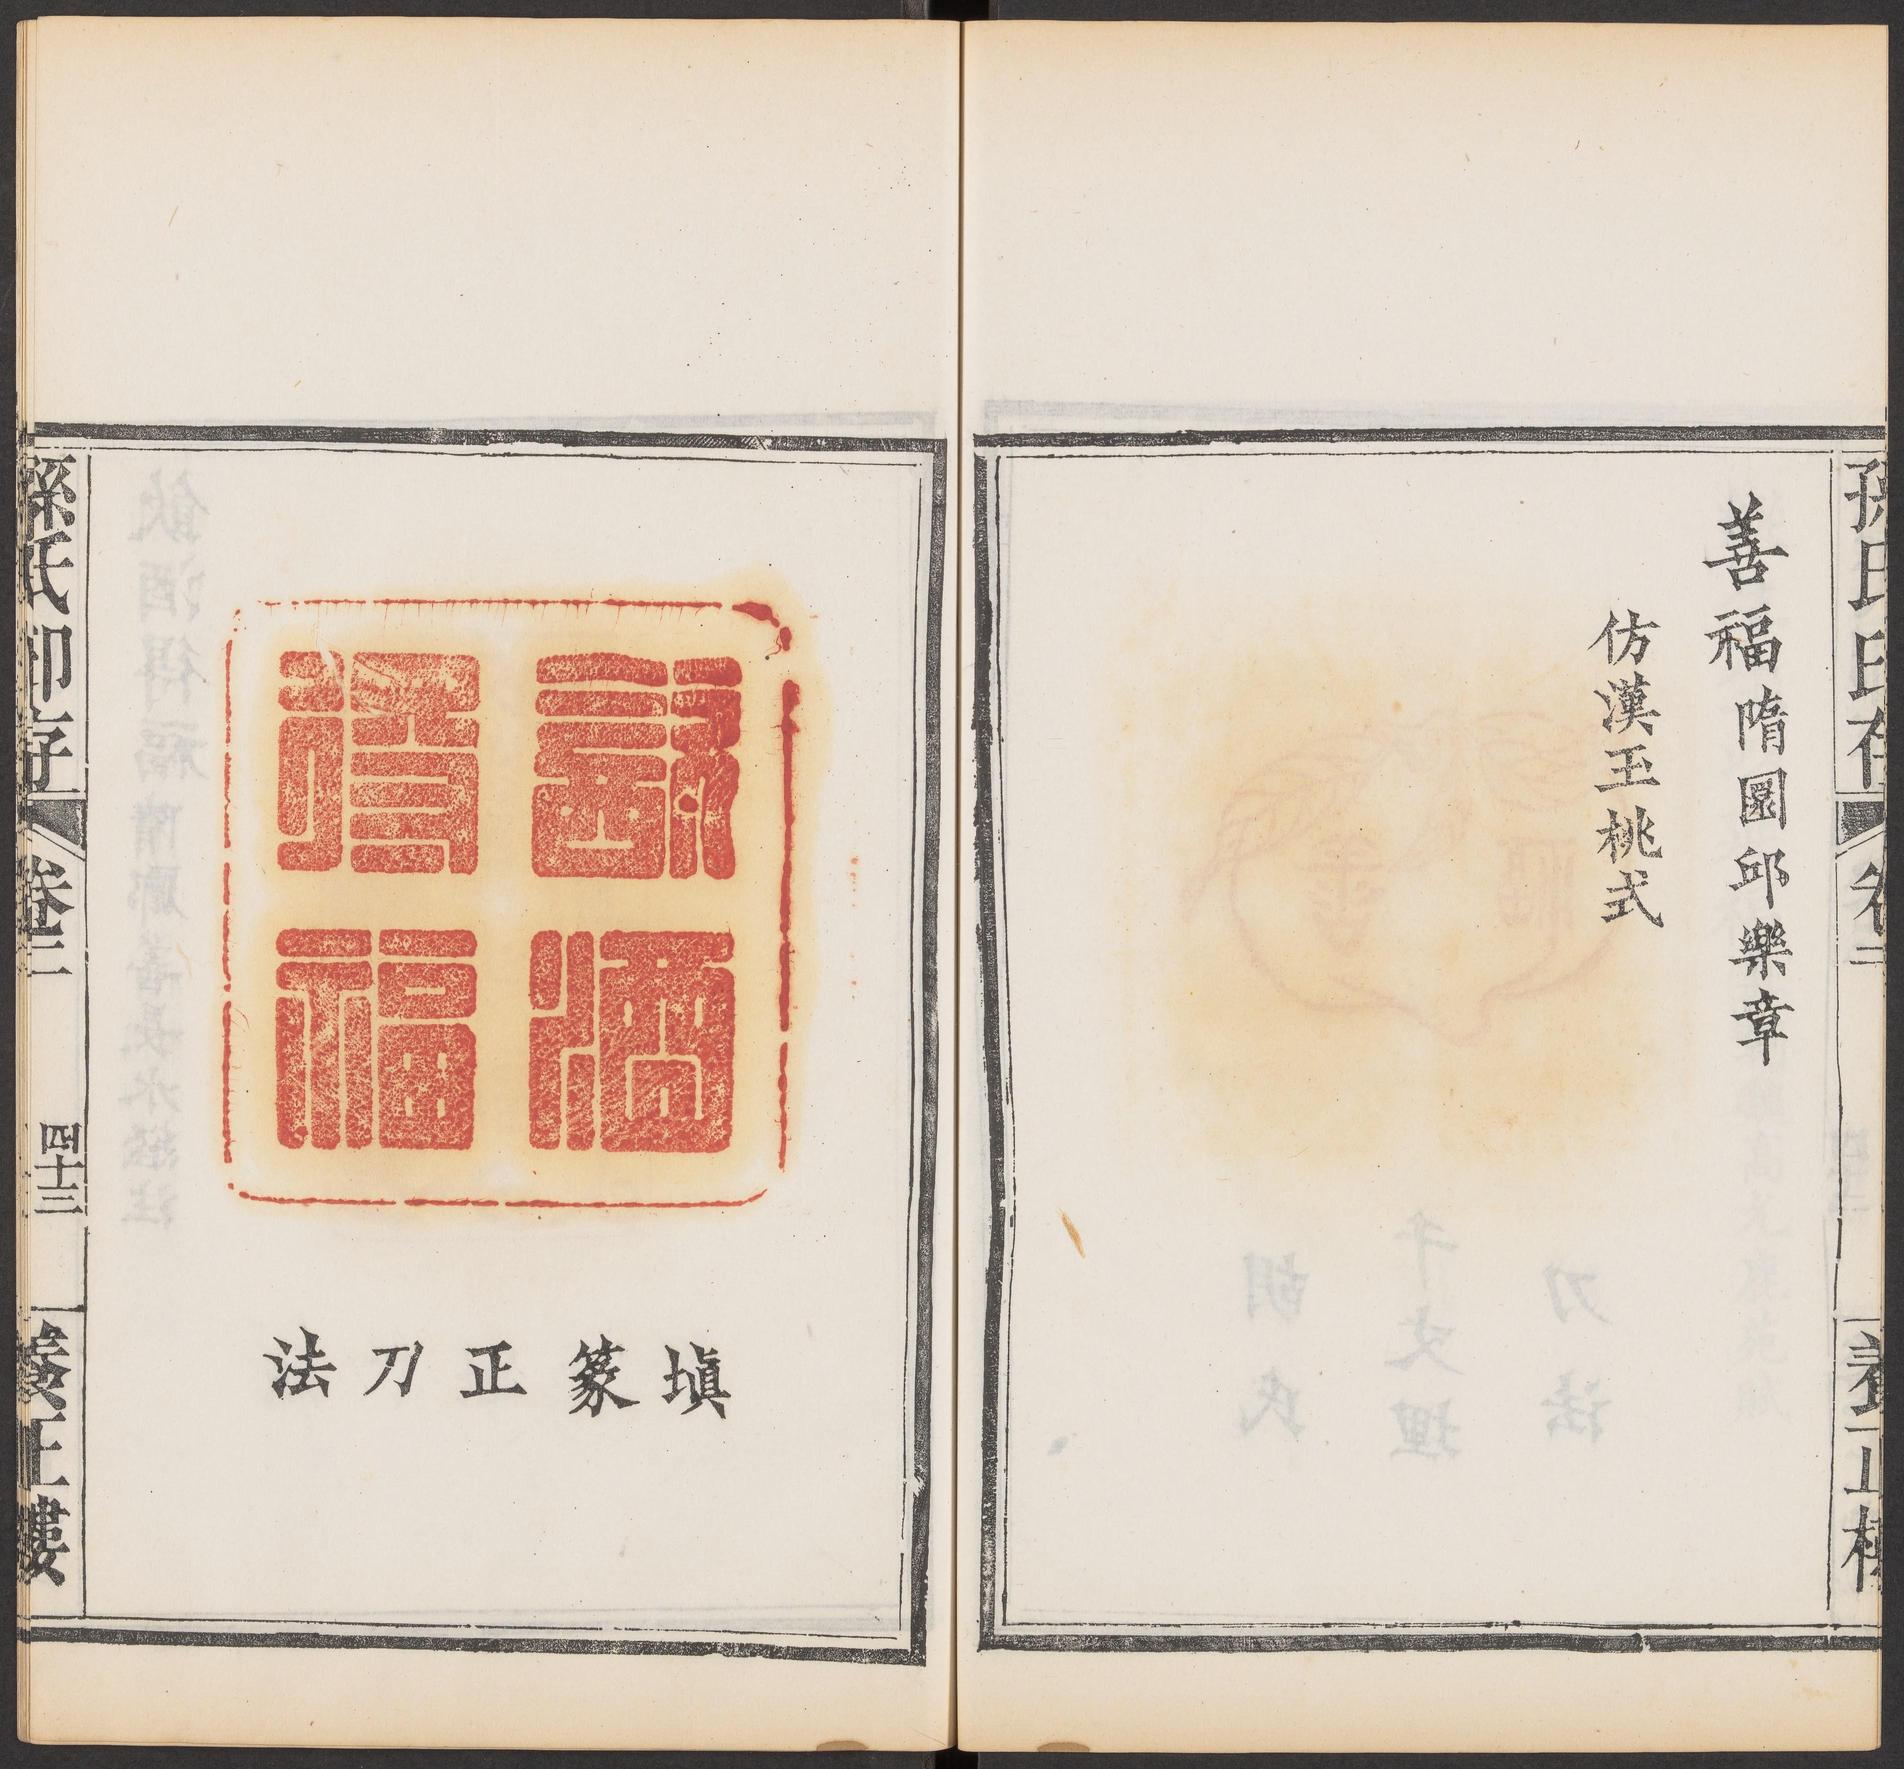 孫氏印存
卷二
養正樓
善福隋園邱樂章
仿漢玉桃式
飲酒
得福
塡篆正刀法
孫氏印存
卷二
四十三
養正樓